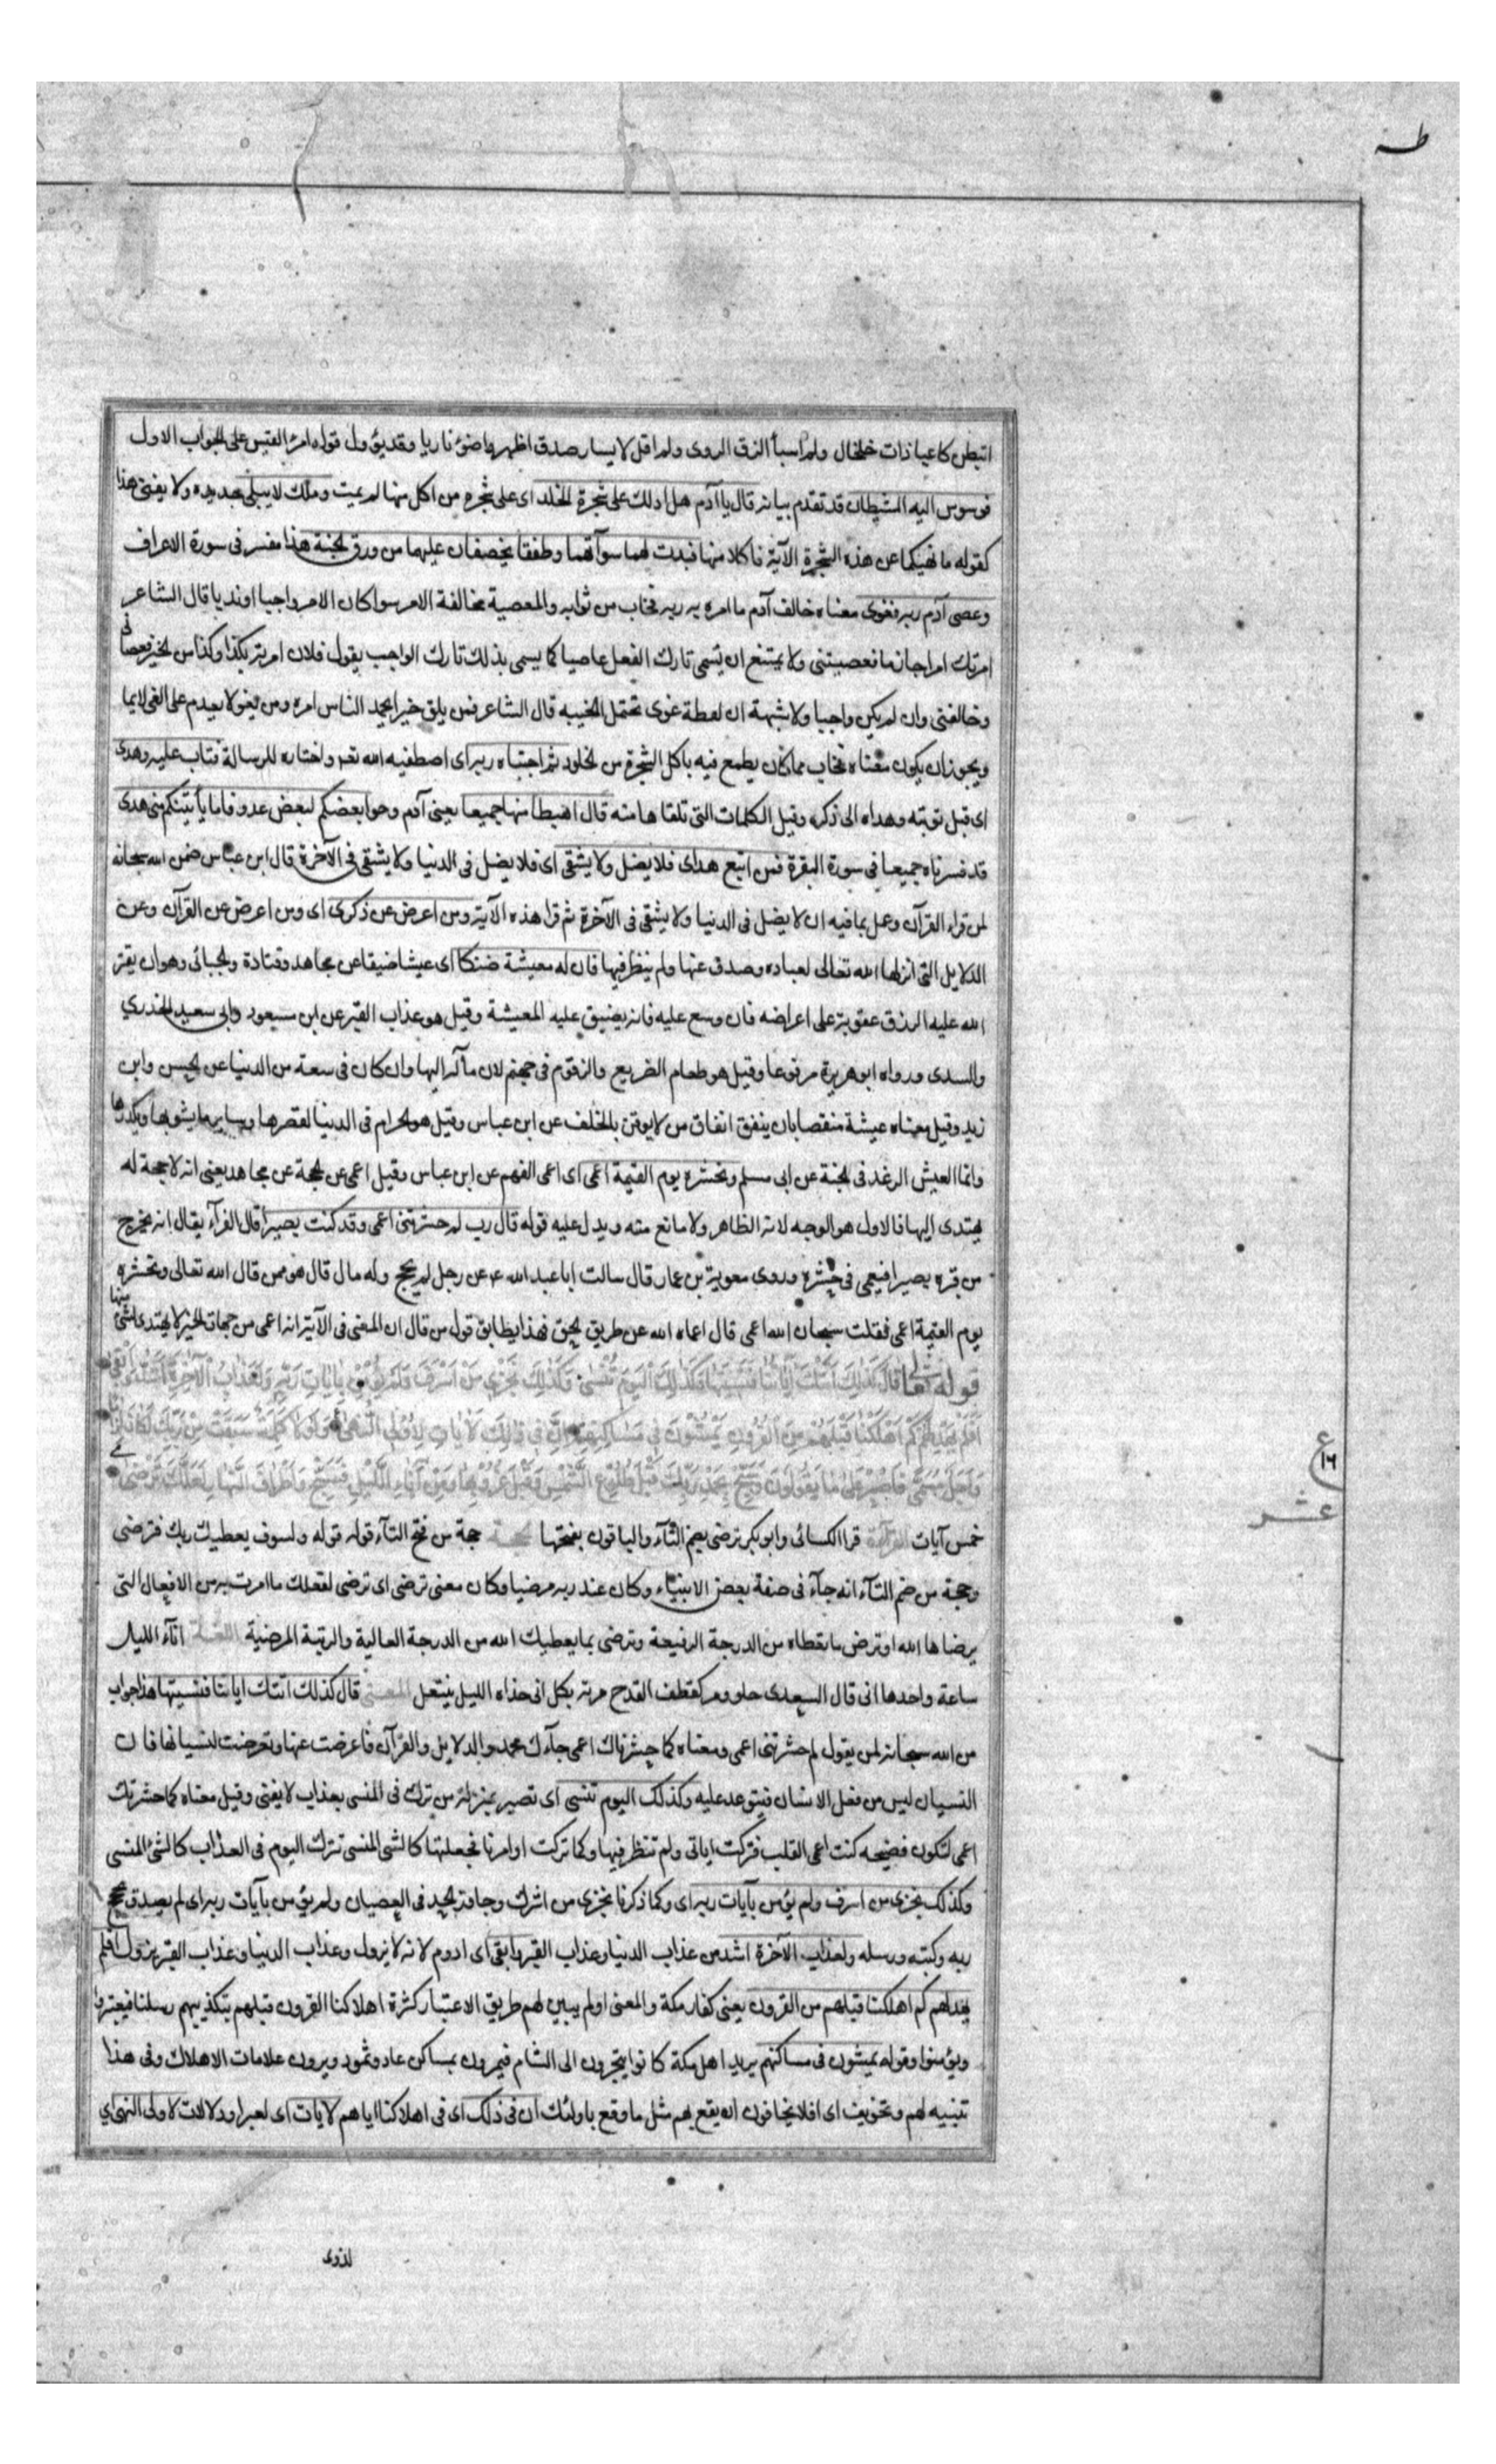 طه
اتبطن كاعبا ذات خلخال ولم اسبأ الزق الروى ولم اقل لايسار صدق اظهروا ضوء ناريا وقد يؤول قوله امرئ القيس على الجواب الاول
فوسوس اليه الشيطان قد تقدم بيانه قال يا آدم هل ادلك على شجرة الخلد اى على شجره من اكل منها لم يمت وملك لا يبلى جديده ولا يفنى هذا
كقوله ما نهيكما عن هذه الشجرة الآية فاكلا منها فبدت لهما سوآتهما وطفقا يخصفان عليهما من ورق الجنة هذا مفسر فى سورة الاعراف
وعصى آدم ربه فغوى معناه خالف آدم ما امره به ربه فخاب من ثوابه والمعصية مخالفة الامر سوا كان الامر واجبا او ندبا قال الشاعر
امرتك امرا جازما فعصيتنى ولا يمتنع ان يسمى تارك الفعل عاصيا كما يسمى بذلك تارك الواجب يقول فلان امرته بكذا وكذا من الخير فعصانى
وخالفنى وان لم يكن واجبا ولا شبهة ان لفظة غوى تحتمل الخيبه قال الشاعر فمن يلق خيرا يحمد الناس امره ومن يغو لا يعدم على الغى لايما
ويجوز ان يكون معناه فخاب مما كان يطمع فيه باكل الشجرة من الخلود ثم اجتباه ربه اى اصطفيه الله تعه واختاره للرسالة فتاب عليه وهدى
اى قبل توبته وهداه الى ذكره وقيل الكلمات التى تلقاها منه قال اهبطا منها جميعا يعنى آدم وحوا بعضكم لبعض عدو فاما يأتينكم منى هدى
قد فسرناه جميعا فى سورة البقرة فمن اتبع هداى فلا يضل ولا يشقى اى فلا يضل فى الدنيا ولا يشقى فى الآخرة قال ابن عباس ضمن الله سبحانه
لمن قراء القرآن وعمل بما فيه ان لا يضل فى الدنيا ولا يشقى فى الآخرة ثم قرا هذه الآية ومن اعرض عن ذكرى اى ومن اعرض عن القرآن وعن
الدلايل التى انزلها الله تعالى لعباده وصدف عنها ولم ينظر فيها فان له معيشة ضنكا اى عيشا ضيقا عن مجاهد وقتادة والجبائى وهو ان يقتر
الله عليه الرزق عقوبة على اعراضه فان وسع عليه فانه يضيق عليه المعيشة وقيل هو عذاب القبر عن ابن مسعود وابى سعيد الخدري
والسدى ورواه ابو هريرة مرفوعا وقيل هو طعام الضريع والزقوم فى جهنم لان مآله اليها وان كان فى سعة من الدنيا عن الحسن وابن
زيد وقيل معناه عيشة منقصا بان ينفق انفاق من لا يوقن بالخلف عن ابن عباس وقيل هو الحرام فى الدنيا لقصرها وساير ما يشوبها ويكدرها
وانما العيش الرغد فى الجنة عن ابى مسلم ونحشره يوم القيمة اعمى اى اعمى الفهم عن ابن عباس وقيل اعمى عن الحجة عن مجاهد يعنى انه لا حجة له
يهتدى اليها فالاول هو الوجه لانه الظاهر ولا مانع منه ويدل عليه قوله قال رب لم حشرتنى اعمى وقد كنت بصيرا قال الفرآء يقال انه يخرج
من قبره بصيرا فيعمى فى حشره وروى معوية بن عمار قال سالت ابا عبد الله ع عن رجل لم يحج وله مال قال هو ممن قال الله تعالى ونحشره
يوم القيمة اعمى فقلت سبحان الله اعمى قال اعماه الله عن طريق الحق فهذا يطابق قول من قال ان المعنى فى الآية انه اعمى من جهات الخير لا يهتدى لشئ منها
قوله تعا قَالَ كَذَلِكَ اَتَتْكَ اٰيَاتُنَا فَنَسِيتَهَا وَكَذٰلِكَ الْيَوْمَ تُنْسٰى وَكَذٰلِكَ نَجْزِي مَنْ اَسْرَفَ وَلَمْ يُؤْمِنْ بِاٰيَاتِ رَبِّهِ وَلَعَذَابُ الْآخِرَةِ اَشَدُّ وَاَبْقٰى
اَفَلَمْ يَهْدِ لَهُمْ كَمْ اَهْلَكْنَا قَبْلَهُمْ مِنَ الْقُرُونِ يَمْشُونَ فِي مَسَاكِنِهِمْ اِنَّ فِى ذٰلِكَ لَاٰيَاتٍ لِاُولِى النُّهٰى وَلَوْلَا كَلِمَةٌ سَبَقَتْ مِنْ رَبِّكَ لَكَانَ لِزَامًا
وَاَجَلٌ مُسَمًّى فَاصْبِرْ عَلٰى مَا يَقُولُونَ وَسَبِّحْ بِحَمْدِ رَبِّكَ قَبْلَ طُلُوعِ الشَّمْسِ وَقَبْلَ غُرُوبِهَا وَمِنْ اٰنَاءِ اللَّيْلِ فَسَبِّحْ وَاَطْرَافَ النَّهَارِ لَعَلَّكَ تَرْضٰى
ع
١٦
عشر
خمس آيات القراءة قرا الكسائى وابو بكر ترضى بضم التآء والباقون بفتحها الحجة حجة من فتح التآء قوله قوله ولسوف يعطيك ربك فترضى
وحجة من ضم التآء انه جآء فى صفة بعض الانبيآء وكان عند ربه مرضيا وكان معنى ترضى اى ترضى لفعلك ما امرت به من الافعال التى
يرضاها الله او ترضى ما تعطاه من الدرجة الرفيعة وترضى بما يعطيك الله من الدرجة العالية والرتبة المرضية اللغة اناء الليل
ساعة واحدها انى قال السعدى حلو ومر كعطف القدح مرته بكل انى حذاه الليل ينتعل المعنى قال كذلك اتتك اياتنا فنسيتها هذا جواب
من الله سبحانه لمن يقول لم حشرتنى اعمى ومعناه كما حشرناك اعمى جآءك محمد والدلايل والقرآن فاعرضت عنها وتعرضت لنسيانها فان
النسيان ليس من فعل الانسان فيتوعد عليه وكذلك اليوم تنسى اى تصير بمنزلة من ترك فى المنسى بعذاب لا يفنى وقيل معناه كما حشرتك
اعمى لتكون فضيحه كنت اعمى القلب فتركت اياتى ولم تنظر فيها وكما تركت اوامرنا فجعلتها كالشئ المنسى تترك اليوم فى العذاب كالشئ المنسى
وكذلك نجزى من اسرف ولم يؤمن بآيات ربه اى وكما ذكرنا نجزى من اشرك وجاوز الحد فى العصيان ولم يؤمن بآيات ربه اى لم يصدق بحجج
ربه وكتبه ورسله ولعذاب الآخرة اشد من عذاب الدنيا وعذاب القبر وابقى اى ادوم لانه لا يزول وعذاب الدنيا وعذاب القبر يزول افلم
يهد لهم كم اهلكنا قبلهم من القرون يعنى كفار مكة والمعنى اولم يبين لهم طريق الاعتبار كثرة اهلاكنا القرون قبلهم بتكذيبهم رسلنا فيعتبروا
ويؤمنوا وقوله يمشون فى مساكنهم يريد اهل مكة كانوا يتجرون الى الشام فيمرون بمساكن عاد وثمود ويرون علامات الاهلاك وفى هذا
تنبيه لهم وتخويف اى افلا يخافون ان يقع بهم مثل ما وقع باولئك ان فى ذلك اى فى اهلاكنا اياهم لايات اى لعبرا ودلالات لاولى النهى اي
لذوى